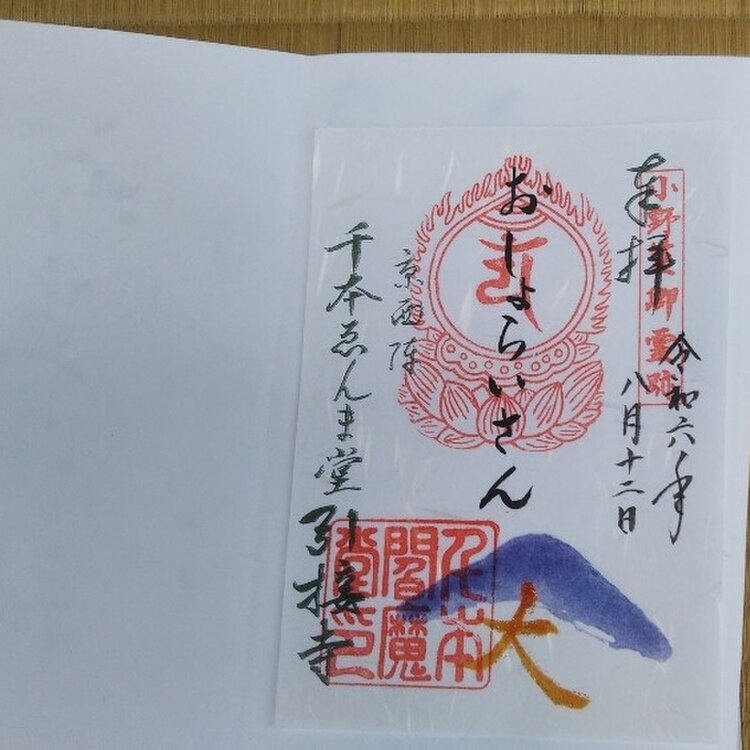 奉拝
小野篁卿霊跡
令和六年
八月十二日
おしょらいさん
京西陣
千本ゑんま堂
引接寺
千本
閻魔
堂印
大